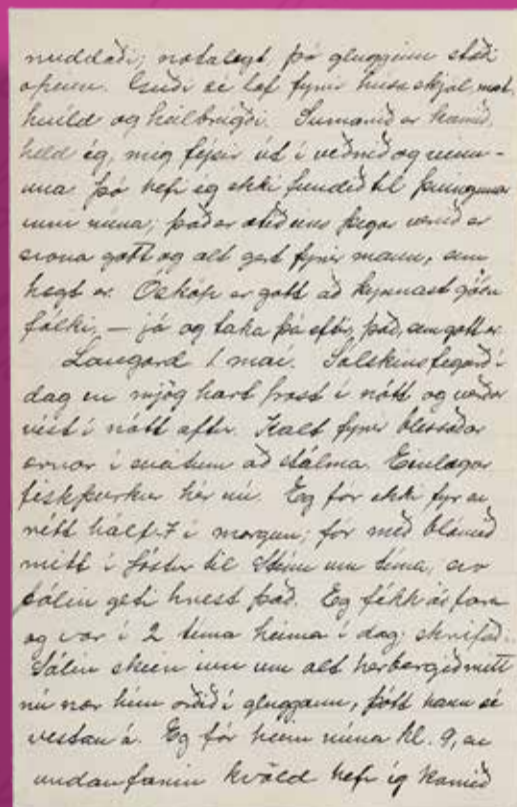 nuddaði; notalegt, þó glugginn stæði
opinn. Guði sé lof fyrir húsaskjól, mat,
hvíld og heilbrigði. Sumarið er komið,
held ég, mig fýsir út í veðrið og
una þó hefi eg ekki fundið til
inni núna; það er ætíð eins þegar verið er
svona gott og alt gert fyrir mann, sem
hægt er. Ósköp er gott að kynnast góðu
fólki, — já og taka þá eftir, það, sem gott er.
Laugard 1 maí. Sólskins fegurð í
dag en mjög hart frost í nótt og verður
víst í nótt aftur. Kalt fyrir blessaðar
í að
fiskþurkur hér nú. Eg fór ekki fyr en
rétt hálf 7 í morgun; fór með blómið
mitt í fóstur til Steinu um tíma, svo
sólin geti hrest það. Eg fékk
og var í 2 tíma heima í dag; skrifaði.
Sólin skein inn um alt herbergið mitt
nú nær hún orðið í gluggann, þótt hann sé
vestan á. Eg fór heim núna kl. 9, en
undanfarin kvöld hefi ég komið